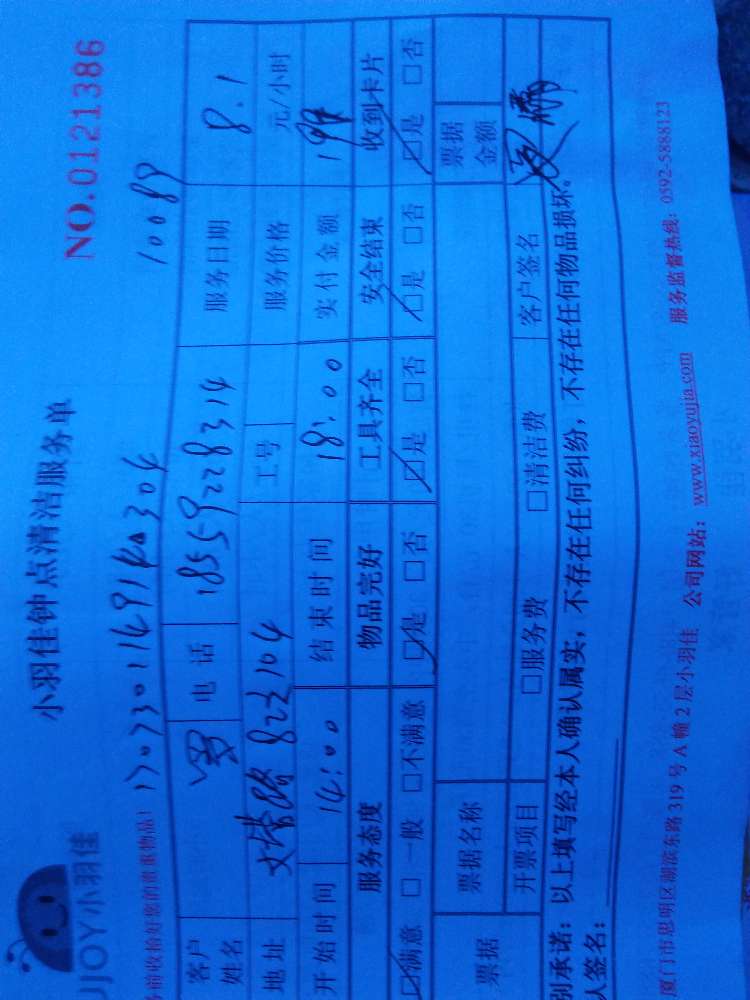 小羽佳钟点清洁服务单
NO.0121386
UJOY小羽佳
前收拾好您的贵重物品!
10089
客户姓名 罗 电话 18559228314 服务日期 8.1
地址 822 104 工号 服务价格 元/小时
开始时间 14:00 结束时间 18:00 实付金额
服务态度 物品完好 工具齐全 安全结束 收到卡片
□满意 □一般 □不满意 □是 □否 □是 □否 □是 □否 □是 □否
票据 票据名称 票据金额
开票项目 □服务费 □清洁费 客户签名
别承诺:以上填写经本人确认属实,不存在任何纠纷,不存在任何物品损坏。
人签名:
厦门市思明区湖滨东路319号A幢2层小羽佳 公司网站:www.xiaoyujia.com 服务监督热线:0592-5888123